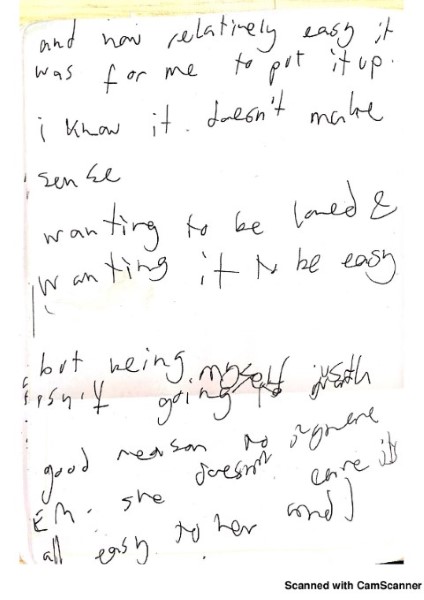 and how relatively easy it
was for me to put it up.
i know it doesn't make
sense
wanting to be loved &
wanting it to be easy
but being myself
isn't going
good reason to ignore
Em. she doesn't care
all easy to her and
Scanned with CamScanner